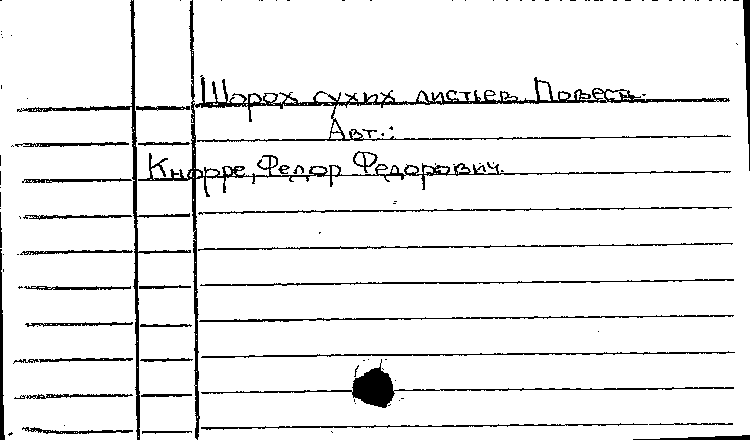 Шорох сухих листьев. Повесть.
Авт.:
Кнорре, Федор Федорович.